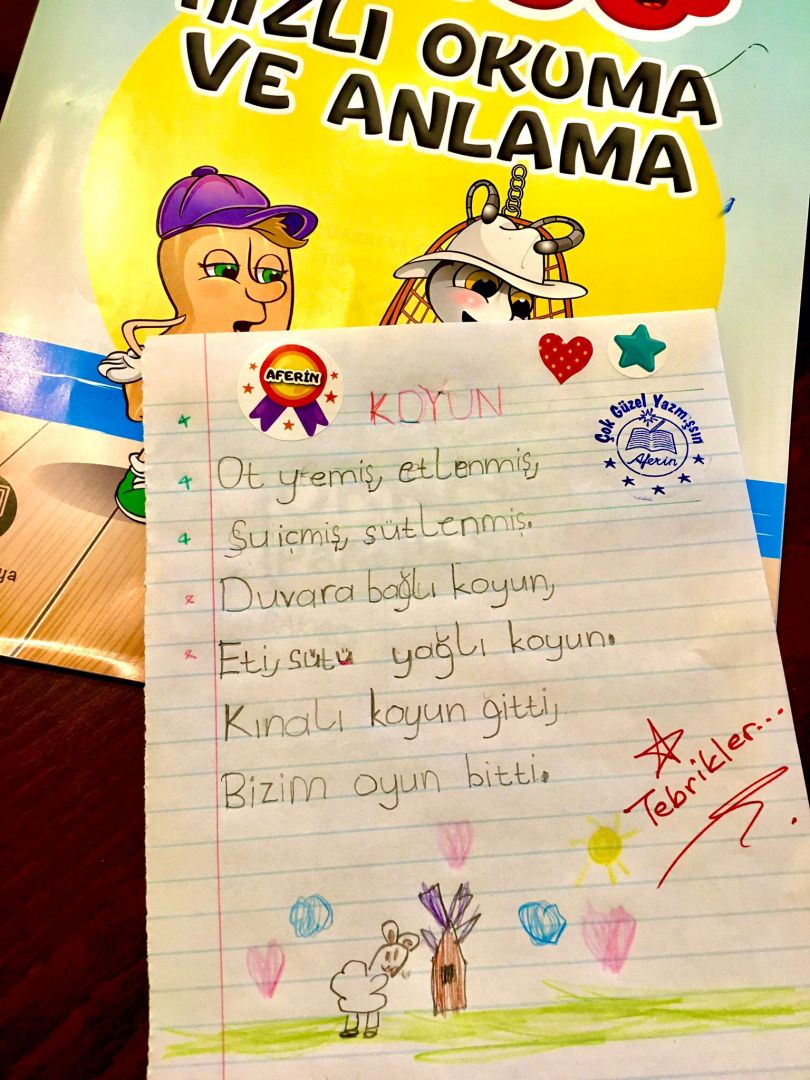 HIZLI OKUMA
VE ANLAMA
AFERİN
KOYUN
Çok Güzel Yazmışsın
Aferin
Ot yemiş, etlenmiş,
Su içmiş, sütlenmiş.
Duvara bağlı koyun,
Eti, sütü yağlı koyun.
Kınalı koyun gitti,
Bizim oyun bitti.
Tebrikler...
ya